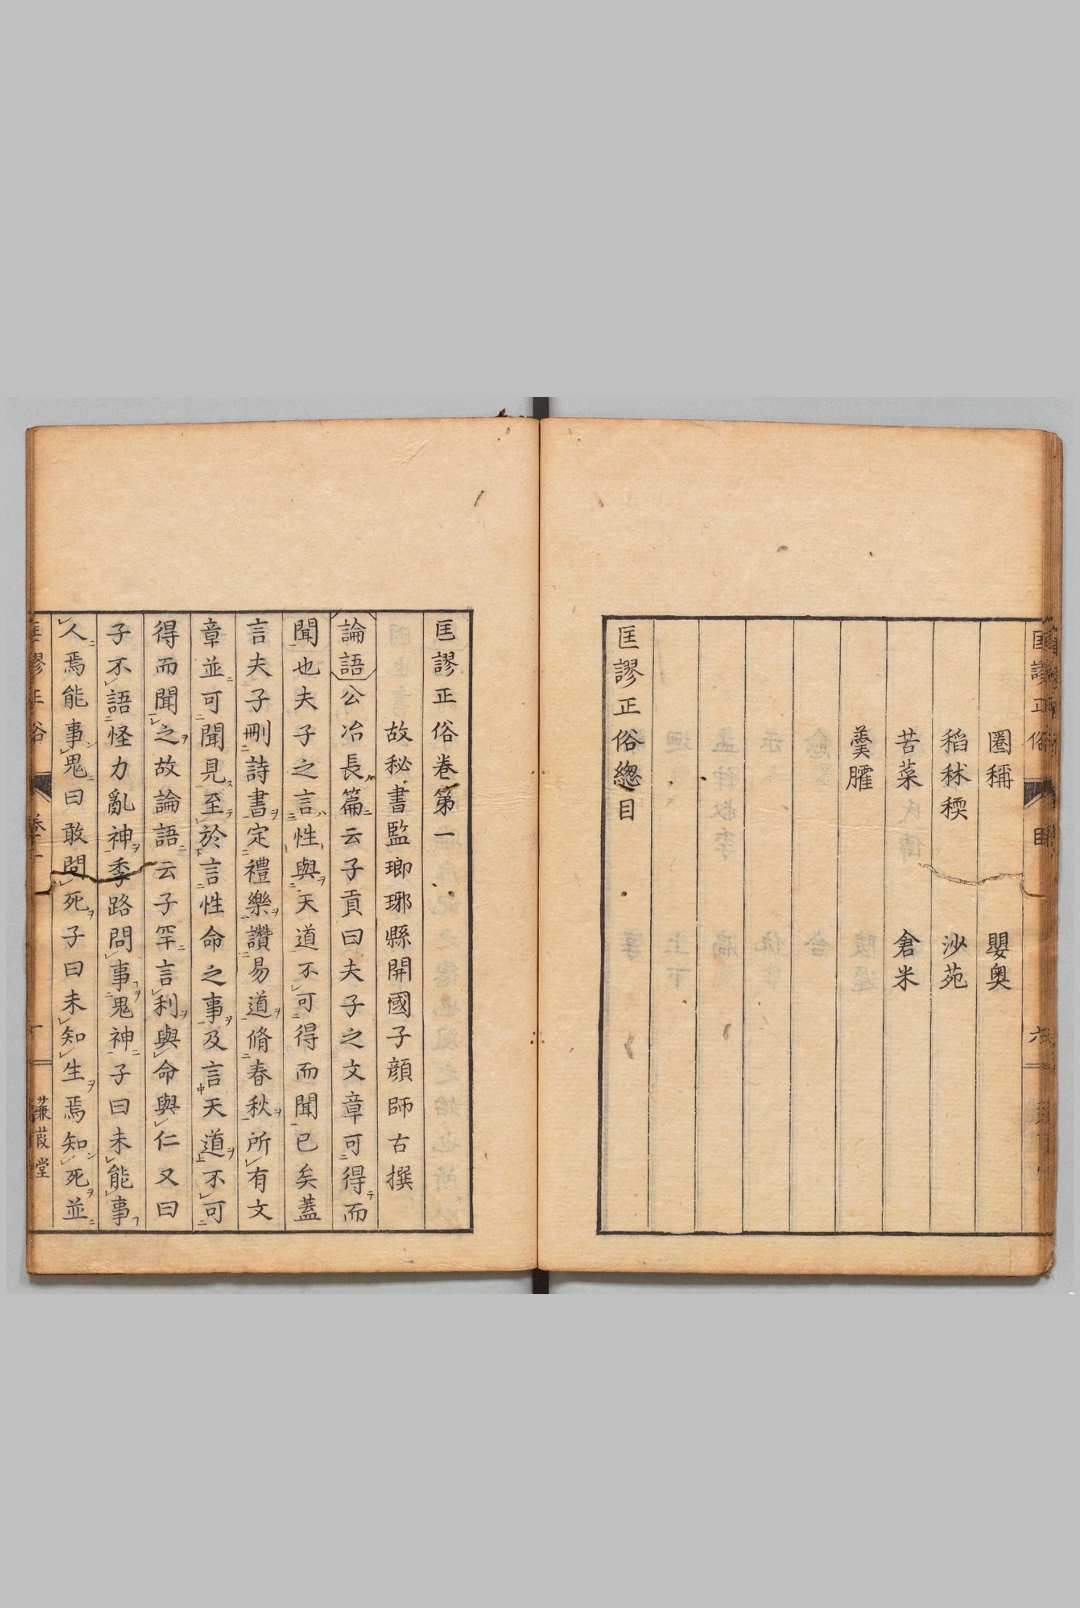 圈稱　嬰奥
稻秫稬　沙苑
苦菜　倉米
羹臛
匡謬正俗總目
匡謬正俗卷第一
故秘書監瑯琊縣開國子顔師古撰
論語公冶長篇云子貢曰夫子之文章可得而
聞也夫子之言性與天道不可得而聞已矣蓋
言夫子刪詩書定禮樂讚易道脩春秋所有文
章並可聞見至於言性命之事及言天道不可
得而聞之故論語云子罕言利與命與仁又曰
子不語怪力亂神季路問事鬼神子曰未能事
人焉能事鬼曰敢問死子曰未知生焉知死並
蒹葭堂